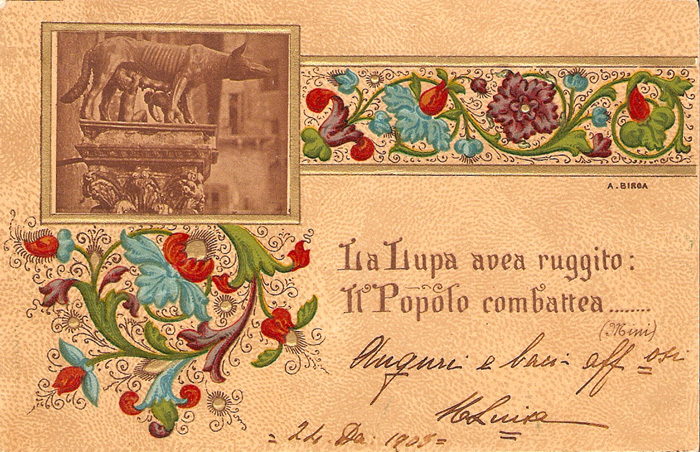 A. BIRGA
La Lupa avea ruggito:
Il Popolo combattea........
(Mini)
Auguri e baci aff=osi
Luisa
= 24. De: 1903=